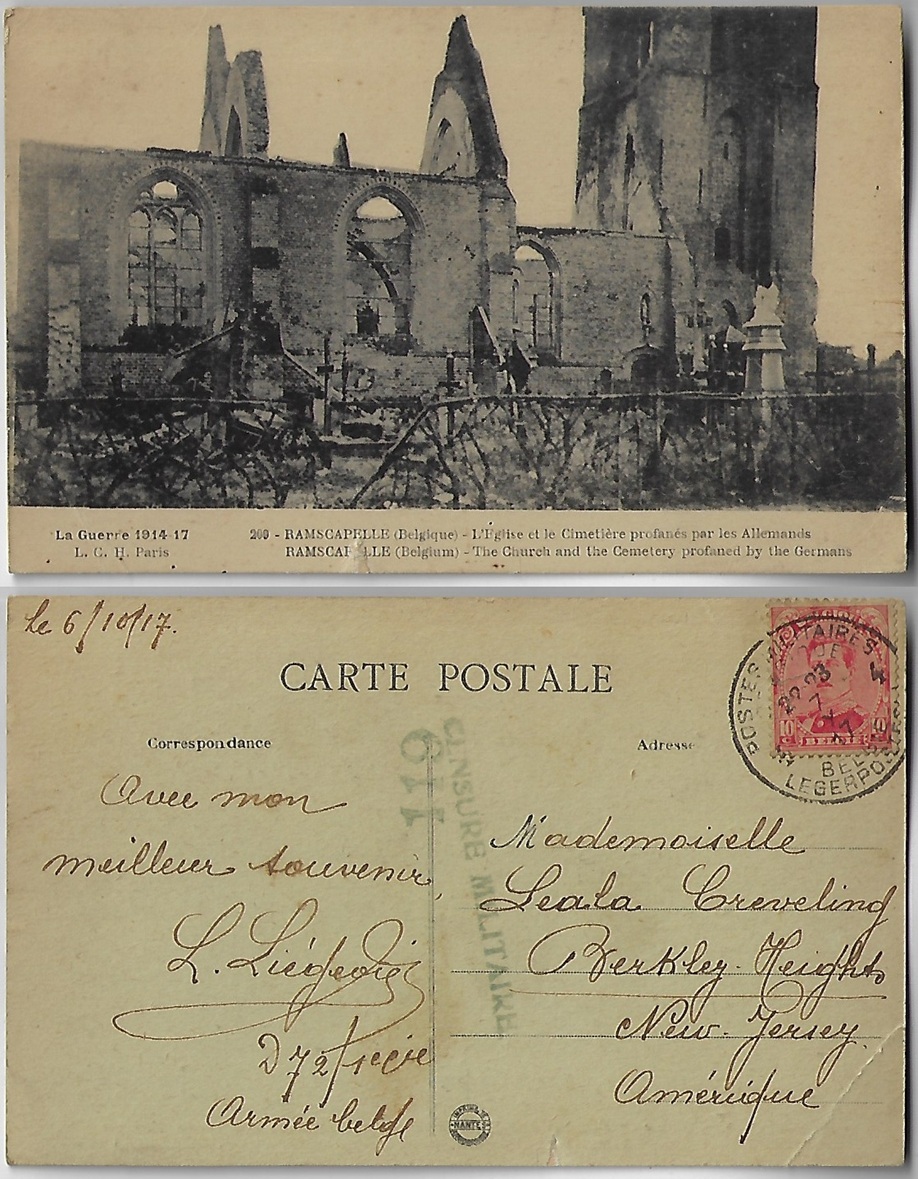 La Guerre 1914-17
L. C. H. Paris
206 - RAMSCAPELLE (Belgique) - L'Eglise et le Cimetière profanés par les Allemands
RAMSCAPELLE (Belgium) - The Church and the Cemetery profaned by the Germans
le 6/10/17.
CARTE POSTALE
Correspondance
Adresse
Avec mon
meilleur souvenir
L. Liégeois
D 72
Armée belge
CENSURE MILITAIRE
Mademoiselle
Leala Creveling
Berkley-Heights
New-Jersey
Amérique
POSTES MILITAIRES 4
7
LEGERPOS
10 C BELGIE 10 C
NANTES